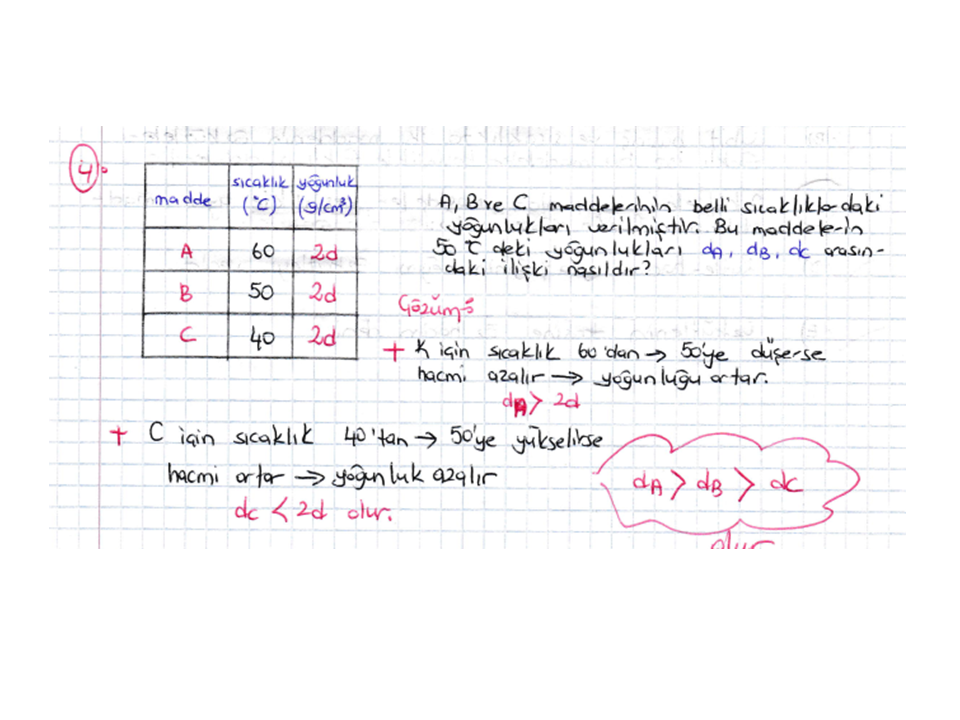 4.
madde sıcaklık (°C) yoğunluk (g/cm³)
A 60 2d
B 50 2d
C 40 2d
A, B ve C maddelerinin belli sıcaklıklardaki
yoğunlukları verilmiştir. Bu maddelerin
50 °C deki yoğunlukları dA, dB, dC arasın-
daki ilişki nasıldır?
Çözüm:
+ K için sıcaklık 60'dan → 50'ye düşerse
hacmi azalır → yoğunluğu artar.
dA > 2d
+ C için sıcaklık 40'tan → 50'ye yükselirse
hacmi artar → yoğunluk azalır
dC < 2d olur.
dA > dB > dC
olur